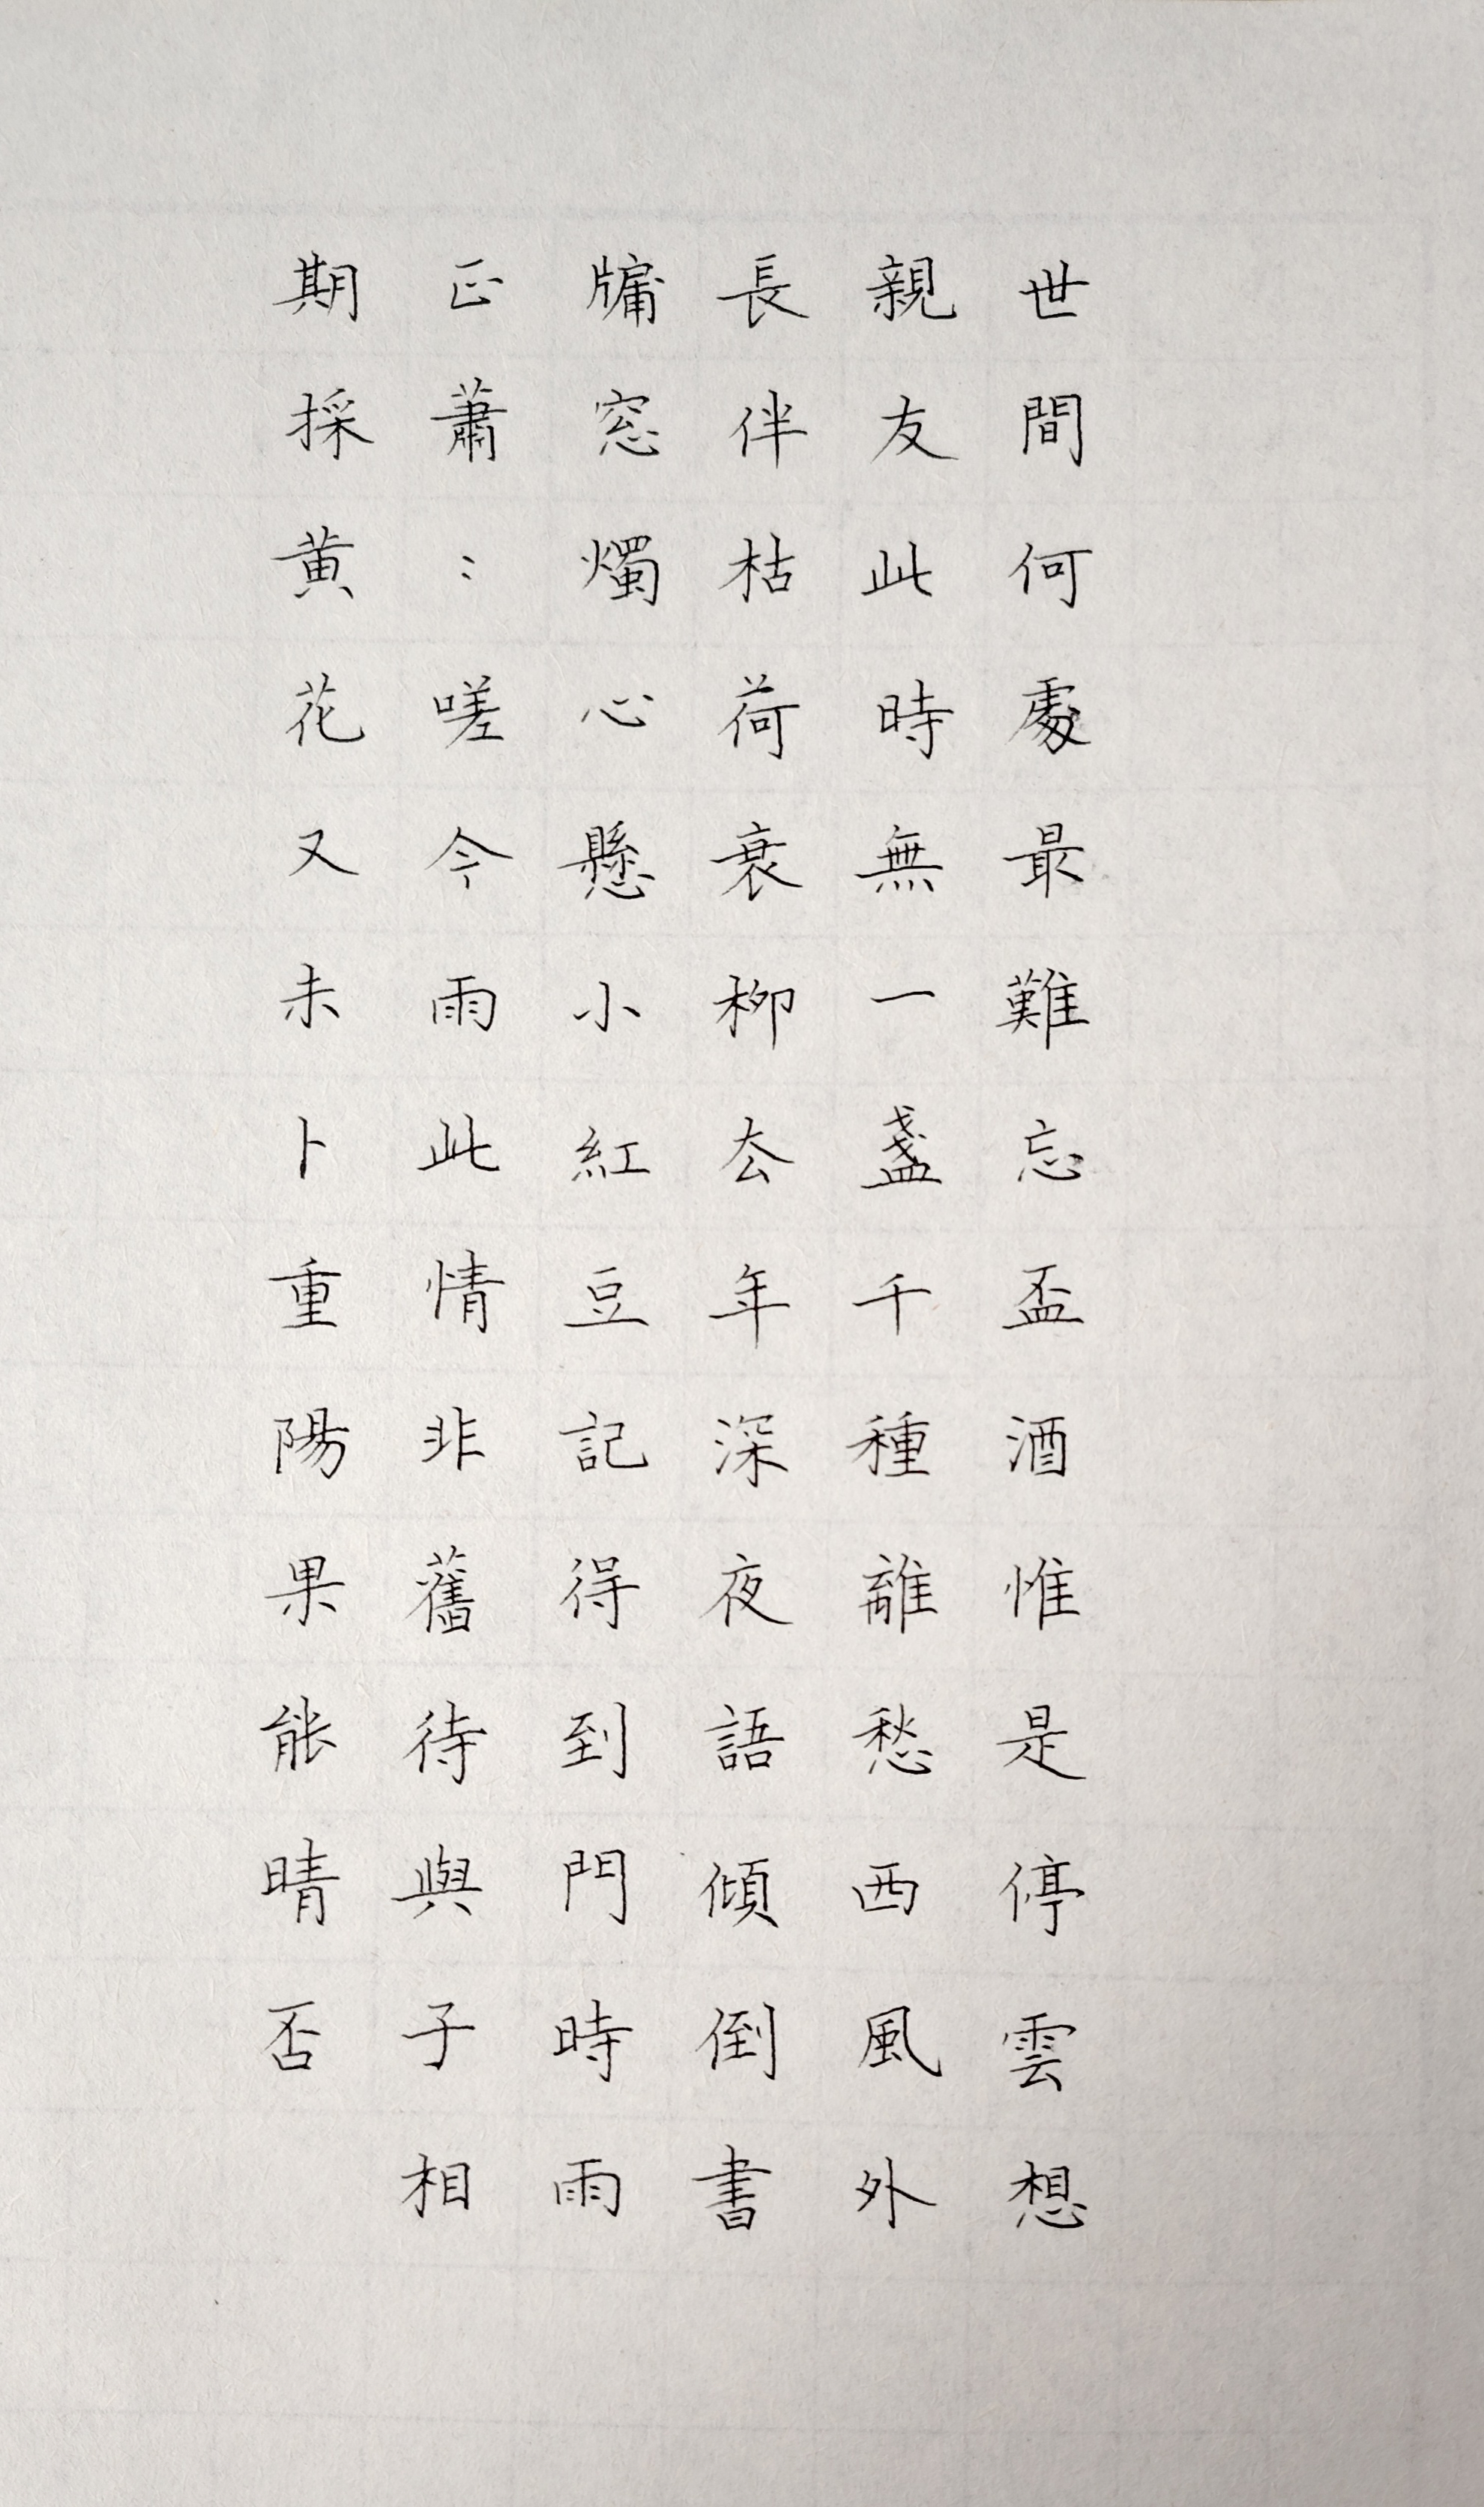 世間何處最難忘盃酒惟是停雲想
親友此時無一盞千種離愁西風外
長伴枯荷衰柳去年深夜語傾倒書
牗窓燭心懸小紅豆記得到門時雨
正蕭〻嗟今雨此情非舊待與子相
期採黃花又未卜重陽果能晴否